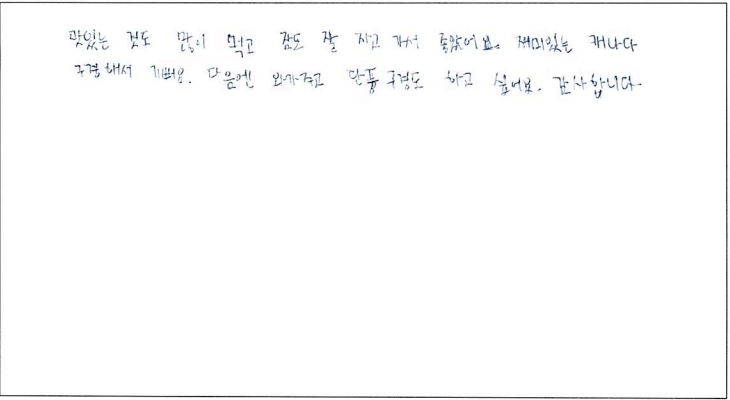 맛있는 것도 많이 먹고 잠도 잘 자고 가서 좋았어요. 재미있는 캐나다
구경해서 기뻐요. 다음엔 와가주고 단풍구경도 하고 싶어요. 감사합니다